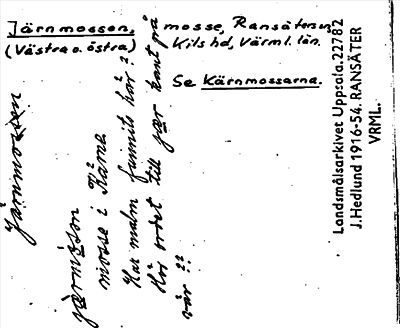 Järnmossen, mosse, Ransäters sn,
(Västra o. östra) Kils hd, Värml. län.
Se Kärnmossarna.
Järnmossen
jærmósen
mosse i Kärne
Har malm funnits här?
Hör ordet till jær kant på
vår??
Landsmålsarkivet Uppsala. 22782
J. Hedlund 1916-54. RANSÄTER
VRML.